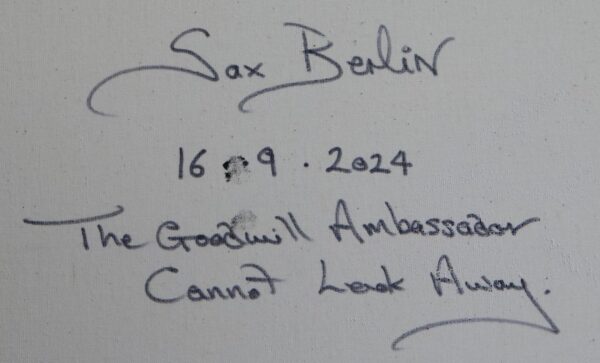 Sax Berlin
16 . 9 . 2024
The Goodwill Ambassador
Cannot Look Away.